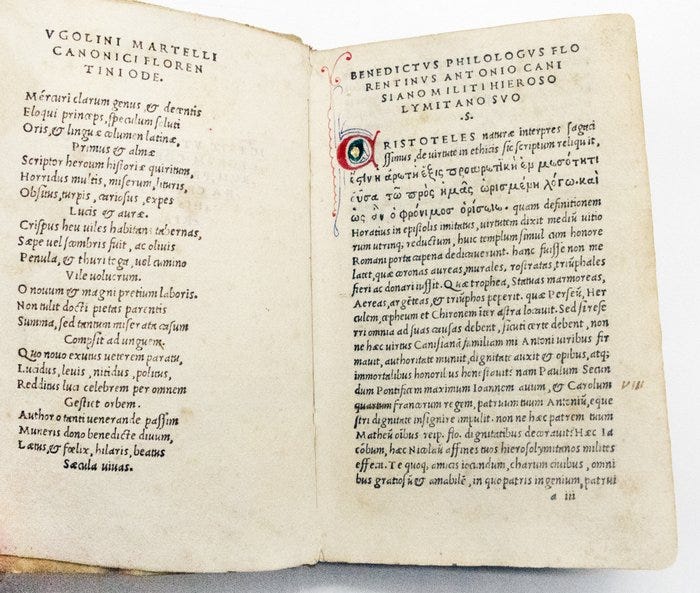 VGOLINI MARTELLI
CANONICI FLOREN
TINI ODE.
Mércuri clarum genus, & decentis
Eloqui princeps, speculum saluti
Oris, & linguæ columen latinæ,
Primus & almæ
Scriptor heroum historiæ quiritum,
Horridus multis, miserum, lituris,
Obsitus, turpis, cariosus, expes
Lucis & auræ.
Crispus heu uiles habitans tabernas,
Sæpe uel scombris fuit, ac oliuis
Penula, & thuri toga, uel cumino
Vile uolucrum.
O nouum & magni pretium laboris.
Non tulit docti pietas parentis
Summa, sed tantum miserata casum
Compsit ad unguem.
Quo nouo exutus ueterem paratu,
Lucidus, leuis, nitidus, politus,
Redditus luci celebrem per omnem
Gestit orbem.
Author o tanti uenerande passim
Muneris dono benedicte diuum,
Lætus, & fœlix, hilaris, beatus
Sæcula uiuas.
BENEDICTVS PHILOLOGVS FLO
RENTINVS ANTONIO CANI
SIANO MILITI HIEROSO
LYMITANO SVO
.S.
RISTOTELES naturæ interpres sagaci
ssimus, de uirtute in ethicis sic scriptum reliquit,
ἐςὶν ἡ ἀρωτὴ ἕξις προαιρωτικὴ ἐν μωσότητι
οὖσα τῶ πρὸς ἡμᾶς ὡρισμένη λόγω. καὶ
ὡς ἂν ὁ φρόνιμος ὁρίσωιω. quam definitionem
Horatius in epistolis imitatus, uirtutem dixit mediū uitio
rum utrinq; reductum, huic templum simul cum honore
Romani porta capena dedicauerunt. hanc fuisse non me
latet, quæ coronas aureas, murales, rostratas, triūphales
fieri ac donari iussit. Quæ trophea, Statuas marmoreas,
Aereas, argēteas, & triūphos peperit. quæ Perseū, Her
culem, cepheum et Chironem iter astra locauit. Sed si rese
rri omnia ad suas causas debent, sicuti certe debent, non
ne hæc uirtus Canisianā familiam mi Antoni uiribus fir
mauit, authoritate muniit, dignitate auxit & opibus, atq;
immortalibus honoribus honestauit: nam Paulum Secun
dum Pontificem maximum Ioannem auum, & Carolum VIII
quartum francorum regem, patruum tuum Antoniū, eque
stri dignitate insignire impulit. non ne hæc patrem tuum
Matheū oībus reip. flo. dignitatibus decorauit: Hæc Ia
cobum, hæc Nicolaū affines tuos hierosolymitanos milites
effecit. Te quoq; amicis iocundum, charum ciuibus, omni
bus gratiosū & amabilē, in quo patris ingenium, patrui
a iii